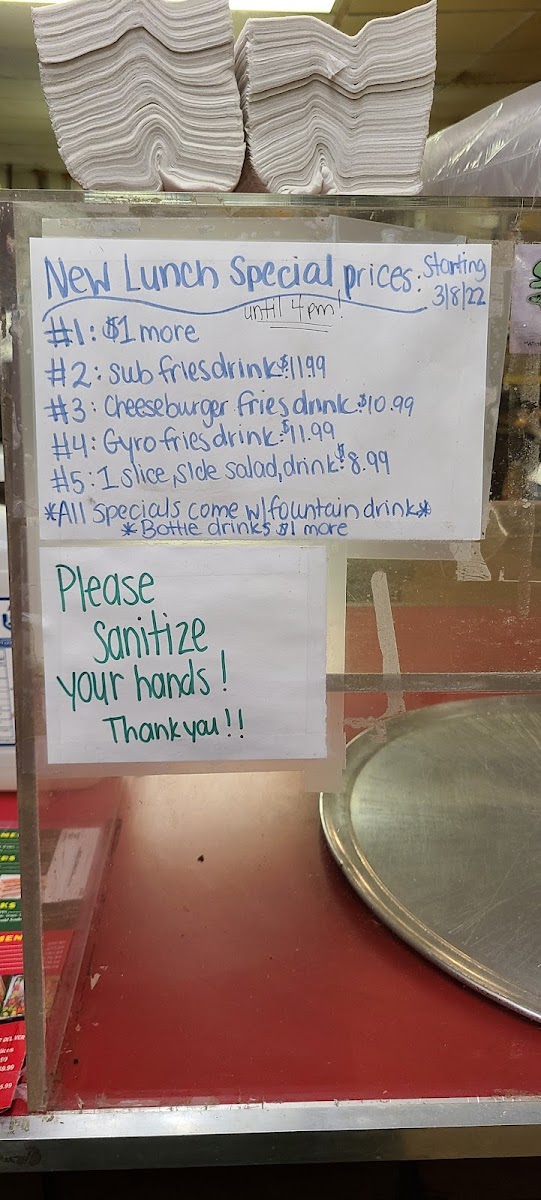 New Lunch Special prices. Starting 3/8/22
until 4pm!
#1: $1 more
#2: sub fries drink $11.99
#3: Cheeseburger fries drink $10.99
#4: Gyro fries drink $11.99
#5: 1 slice, side salad, drink $8.99
*All specials come w/ fountain drink*
*Bottle drinks $1 more
Please
sanitize
your hands!
Thank you!!